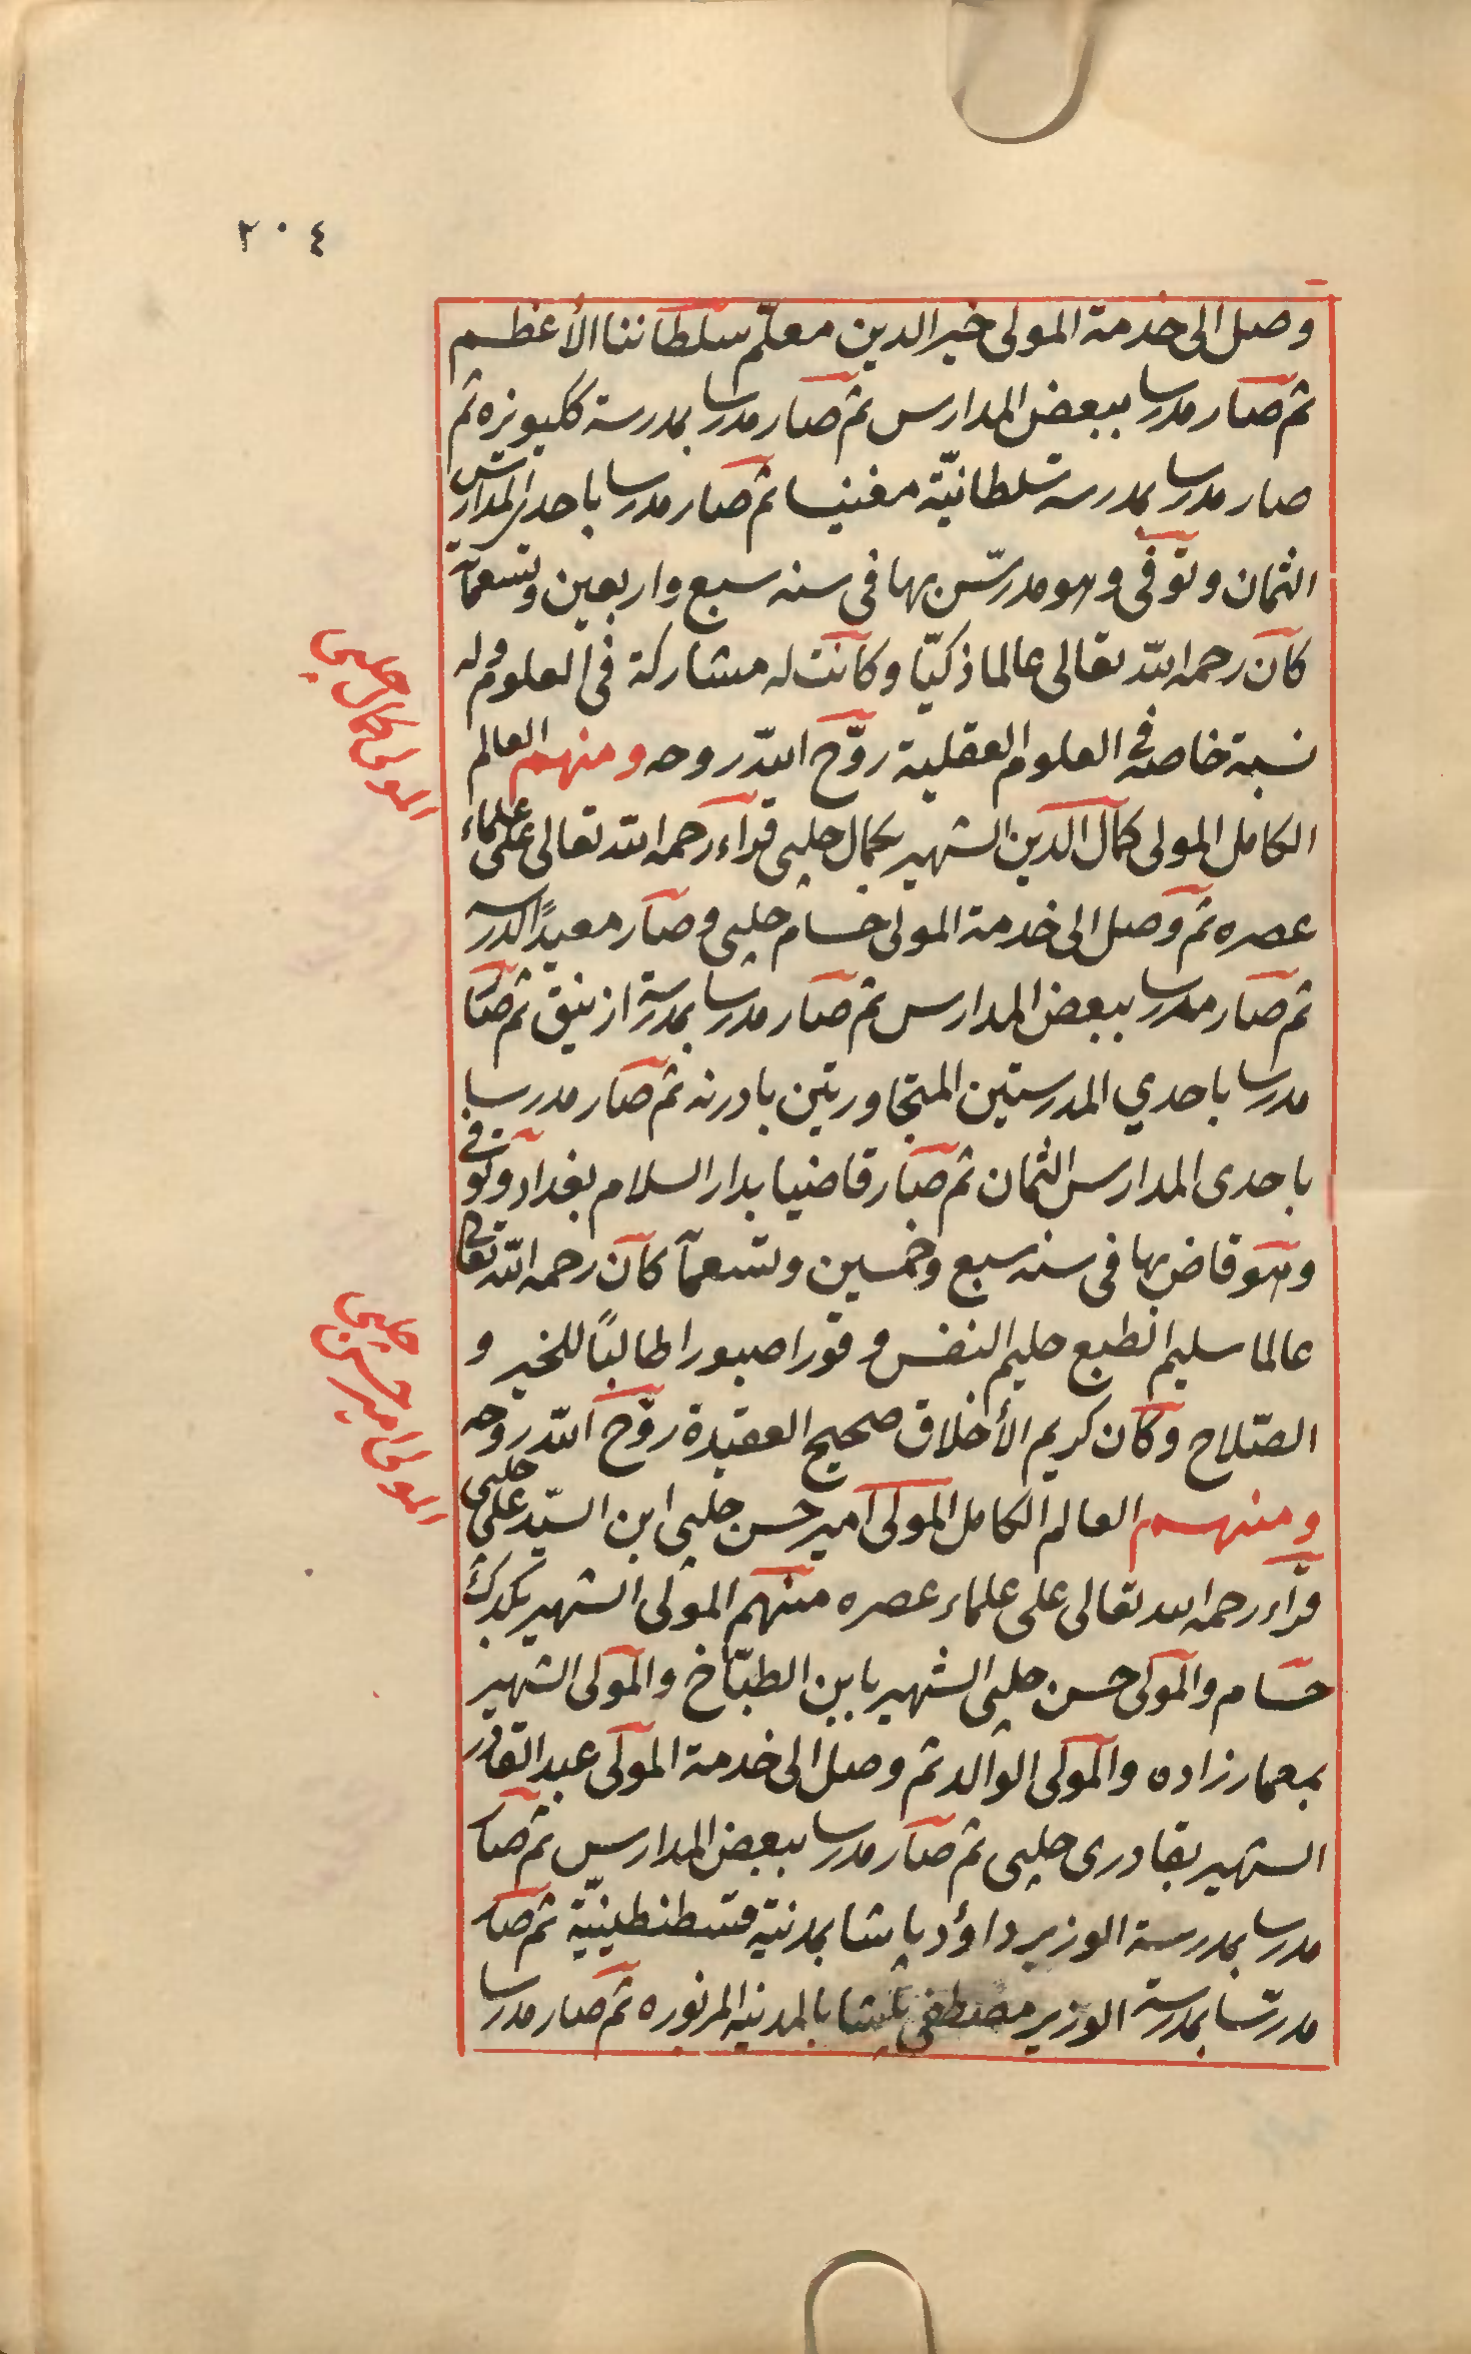 ٢٠٤
وصل الى خدمة المولى خير الدين معلّم سلطاننا الأعظم
ثم صار مدرسا ببعض المدارس ثم صار مدرسا بمدرسة ككبويزه ثم
صار مدرسا بمدرسة سلطانيّة مغنيسا ثم صار مدرسا باحدى المدارس
الثمان وتوفى وهو مدرّس بها فى سنه سبع واربعين وتسعمآئة
كان رحمه الله تعالى عالما ذكيّا وكانت له مشاركة فى العلوم وله
نسبة خاصة فى العلوم العقلية روّح الله روحه ومنهم العالم
الكامل المولى كمال الدين الشهير بكمال جلبى قرأ رحمه الله تعالى على علماء
عصره ثم وصل الى خدمة المولى حسام جلبى وصار معيدًا لدرسه
ثم صار مدرسا ببعض المدارس ثم صار مدرسا بمدرسة ازنيق ثم صار
مدرسا باحدي المدرستين المتجاورتين بادرنه ثم صار مدرسا
باحدى المدارس الثمان ثم صار قاضيا بدار السلام بغداد وتوفى
وهو قاض بها فى سنه سبع وخمسين وتسعمآ كان رحمه الله تعالى
عالما سليم الطبع حليم النفس وقورا صبورا طالبًا للخير و
الصّلاح وكان كريم الأخلاق صحيح العقيدة روّح الله روحه
ومنهم العالم الكامل المولى امير حسن جلبى ابن السيّد على جلبى
قرأ رحمه الله تعالى على علماء عصره منهم المولى الشهير بكدك
حسام والمولى حسن جلبى الشهير بابن الطبّاخ والمولى الشهير
بمعمار زاده والمولى الوالد ثم وصل الى خدمة المولى عبد القادر
الشهير بقادرى جلبى ثم صار مدرسا ببعض المدارس ثم صار
مدرسا بمدرسة الوزير داؤد باشا بمدينة قسطنطينيّة ثم صار
مدرسا بمدرسة الوزير مصطفى باشا بالمدينة المزبوره ثم صار مدرسا
المولى كمال جلبى
المولى امير حسن جلبى